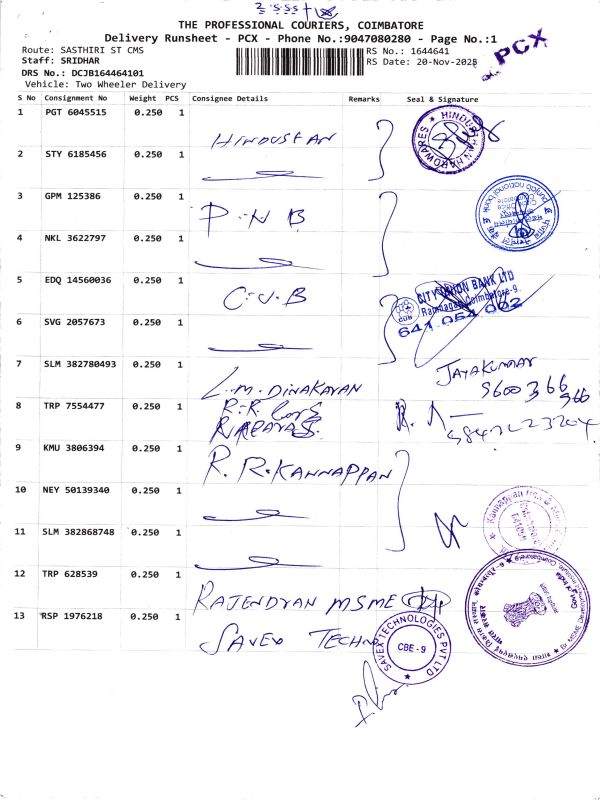 THE PROFESSIONAL COURIERS, COIMBATORE
Delivery Runsheet - PCX - Phone No.:9047080280 - Page No.:1
Route: SASTHIRI ST CMS
RS No.: 1644641
PCX
Staff: SRIDHAR
RS Date: 20-Nov-2023
DRS No.: DCJB164464101
Vehicle: Two Wheeler Delivery
S No Consignment No Weight PCS Consignee Details Remarks Seal & Signature
1 PGT 6045515 0.250 1
HINDUSTAN
HINDUSTHAN HARDWARES
2 STY 6185456 0.250 1
3 GPM 125386 0.250 1
P.N.B
punjab national bank
4 NKL 3622797 0.250 1
5 EDQ 14560036 0.250 1
C.U.B
CITY UNION BANK LTD
Ramnagar, Coimbatore-9.
CUB
641.054.002
6 SVG 2057673 0.250 1
7 SLM 382780493 0.250 1
L.M. DINAKARAN
JAYAKUMAR
9600366
966
8 TRP 7554477 0.250 1
R.R.
9 KMU 3806394 0.250 1
R.R.KANNAPPAN
10 NEY 50139340 0.250 1
Kannappan Iron &
11 SLM 382868748 0.250 1
12 TRP 628539 0.250 1
RAJENDRAN MSME
13 RSP 1976218 0.250 1
SAVEX TECHNO
SAVEX TECHNOLOGIES PVT LTD
CBE - 9